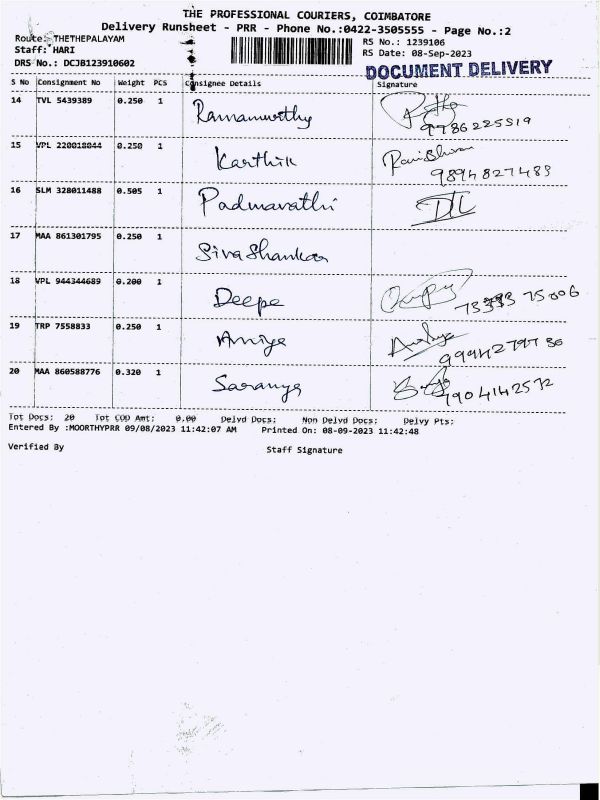 THE PROFESSIONAL COURIERS, COIMBATORE
Delivery Runsheet - PRR - Phone No.:0422-3505555 - Page No.:2
Route: THETHEPALAYAM RS No.: 1239106
Staff: HARI RS Date: 08-Sep-2023
DRS No.: DCJB123910602 DOCUMENT DELIVERY
S No Consignment No Weight PCS Consignee Details Signature
14 TVL 5439389 0.250 1 Ramamurthy
9786225519
15 VPL 220018044 0.250 1 Karthik
9894827483
16 SLM 328011488 0.505 1 Padmavathi
17 MAA 861301795 0.250 1 Sivashankar
18 VPL 944344689 0.200 1 Deepa
75006
19 TRP 7558833 0.250 1
20 MAA 860588776 0.320 1 Saranya
7904142572
Tot Docs: 20 Tot COD Amt: 0.00 Delvd Docs: Non Delvd Docs: Delvy Pts:
Entered By :MOORTHYPRR 09/08/2023 11:42:07 AM Printed On: 08-09-2023 11:42:48
Verified By Staff Signature